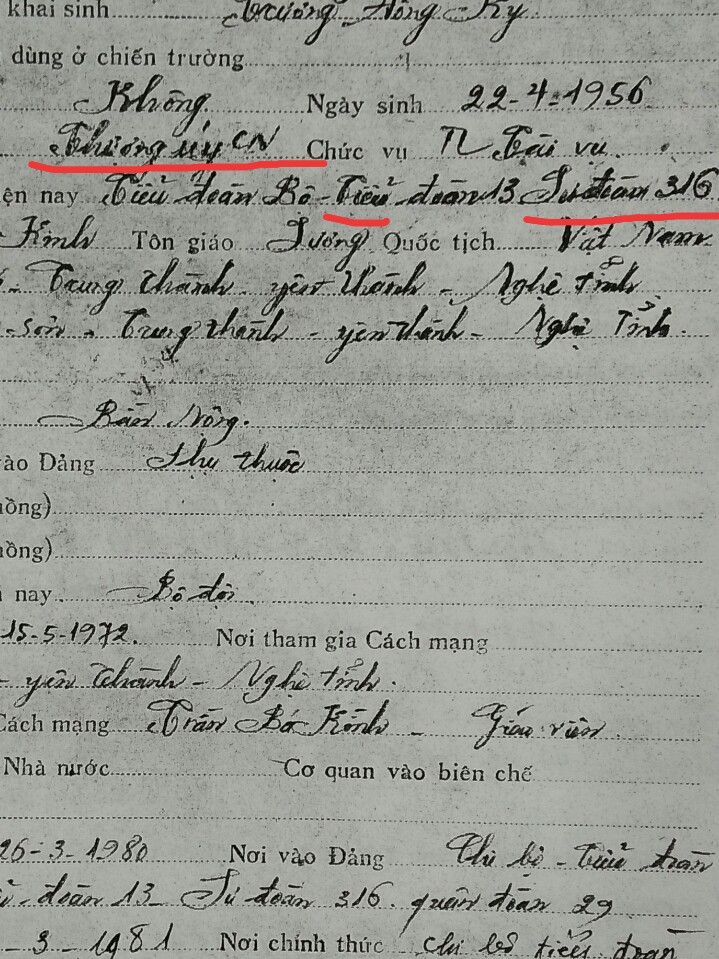 khai sinh Trương Hồng Kỳ
dùng ở chiến trường
Không Ngày sinh 22-4-1956
Thượng úy CN Chức vụ TL Tài vụ
ện nay Tiểu đoàn Bộ - Tiểu đoàn 13 Sư đoàn 316
Kinh Tôn giáo Lương Quốc tịch Việt Nam
- Trung thành - yên thành - Nghệ Tĩnh
-sơn - Trung thành - yên thành - Nghệ Tĩnh.
Bần Nông.
vào Đảng Phụ thuộc
hồng)
hồng)
nay Bộ đội
15-5-1972. Nơi tham gia Cách mạng
- yên thành - Nghệ Tĩnh.
Cách mạng Trần Bá - Giáo viên
Nhà nước Cơ quan vào biên chế
26-3-1980 Nơi vào Đảng Chi bộ - tiểu đoàn
đoàn 13 Sư đoàn 316. quân đoàn 29
-3-1981 Nơi chính thức chi bộ tiểu đoàn